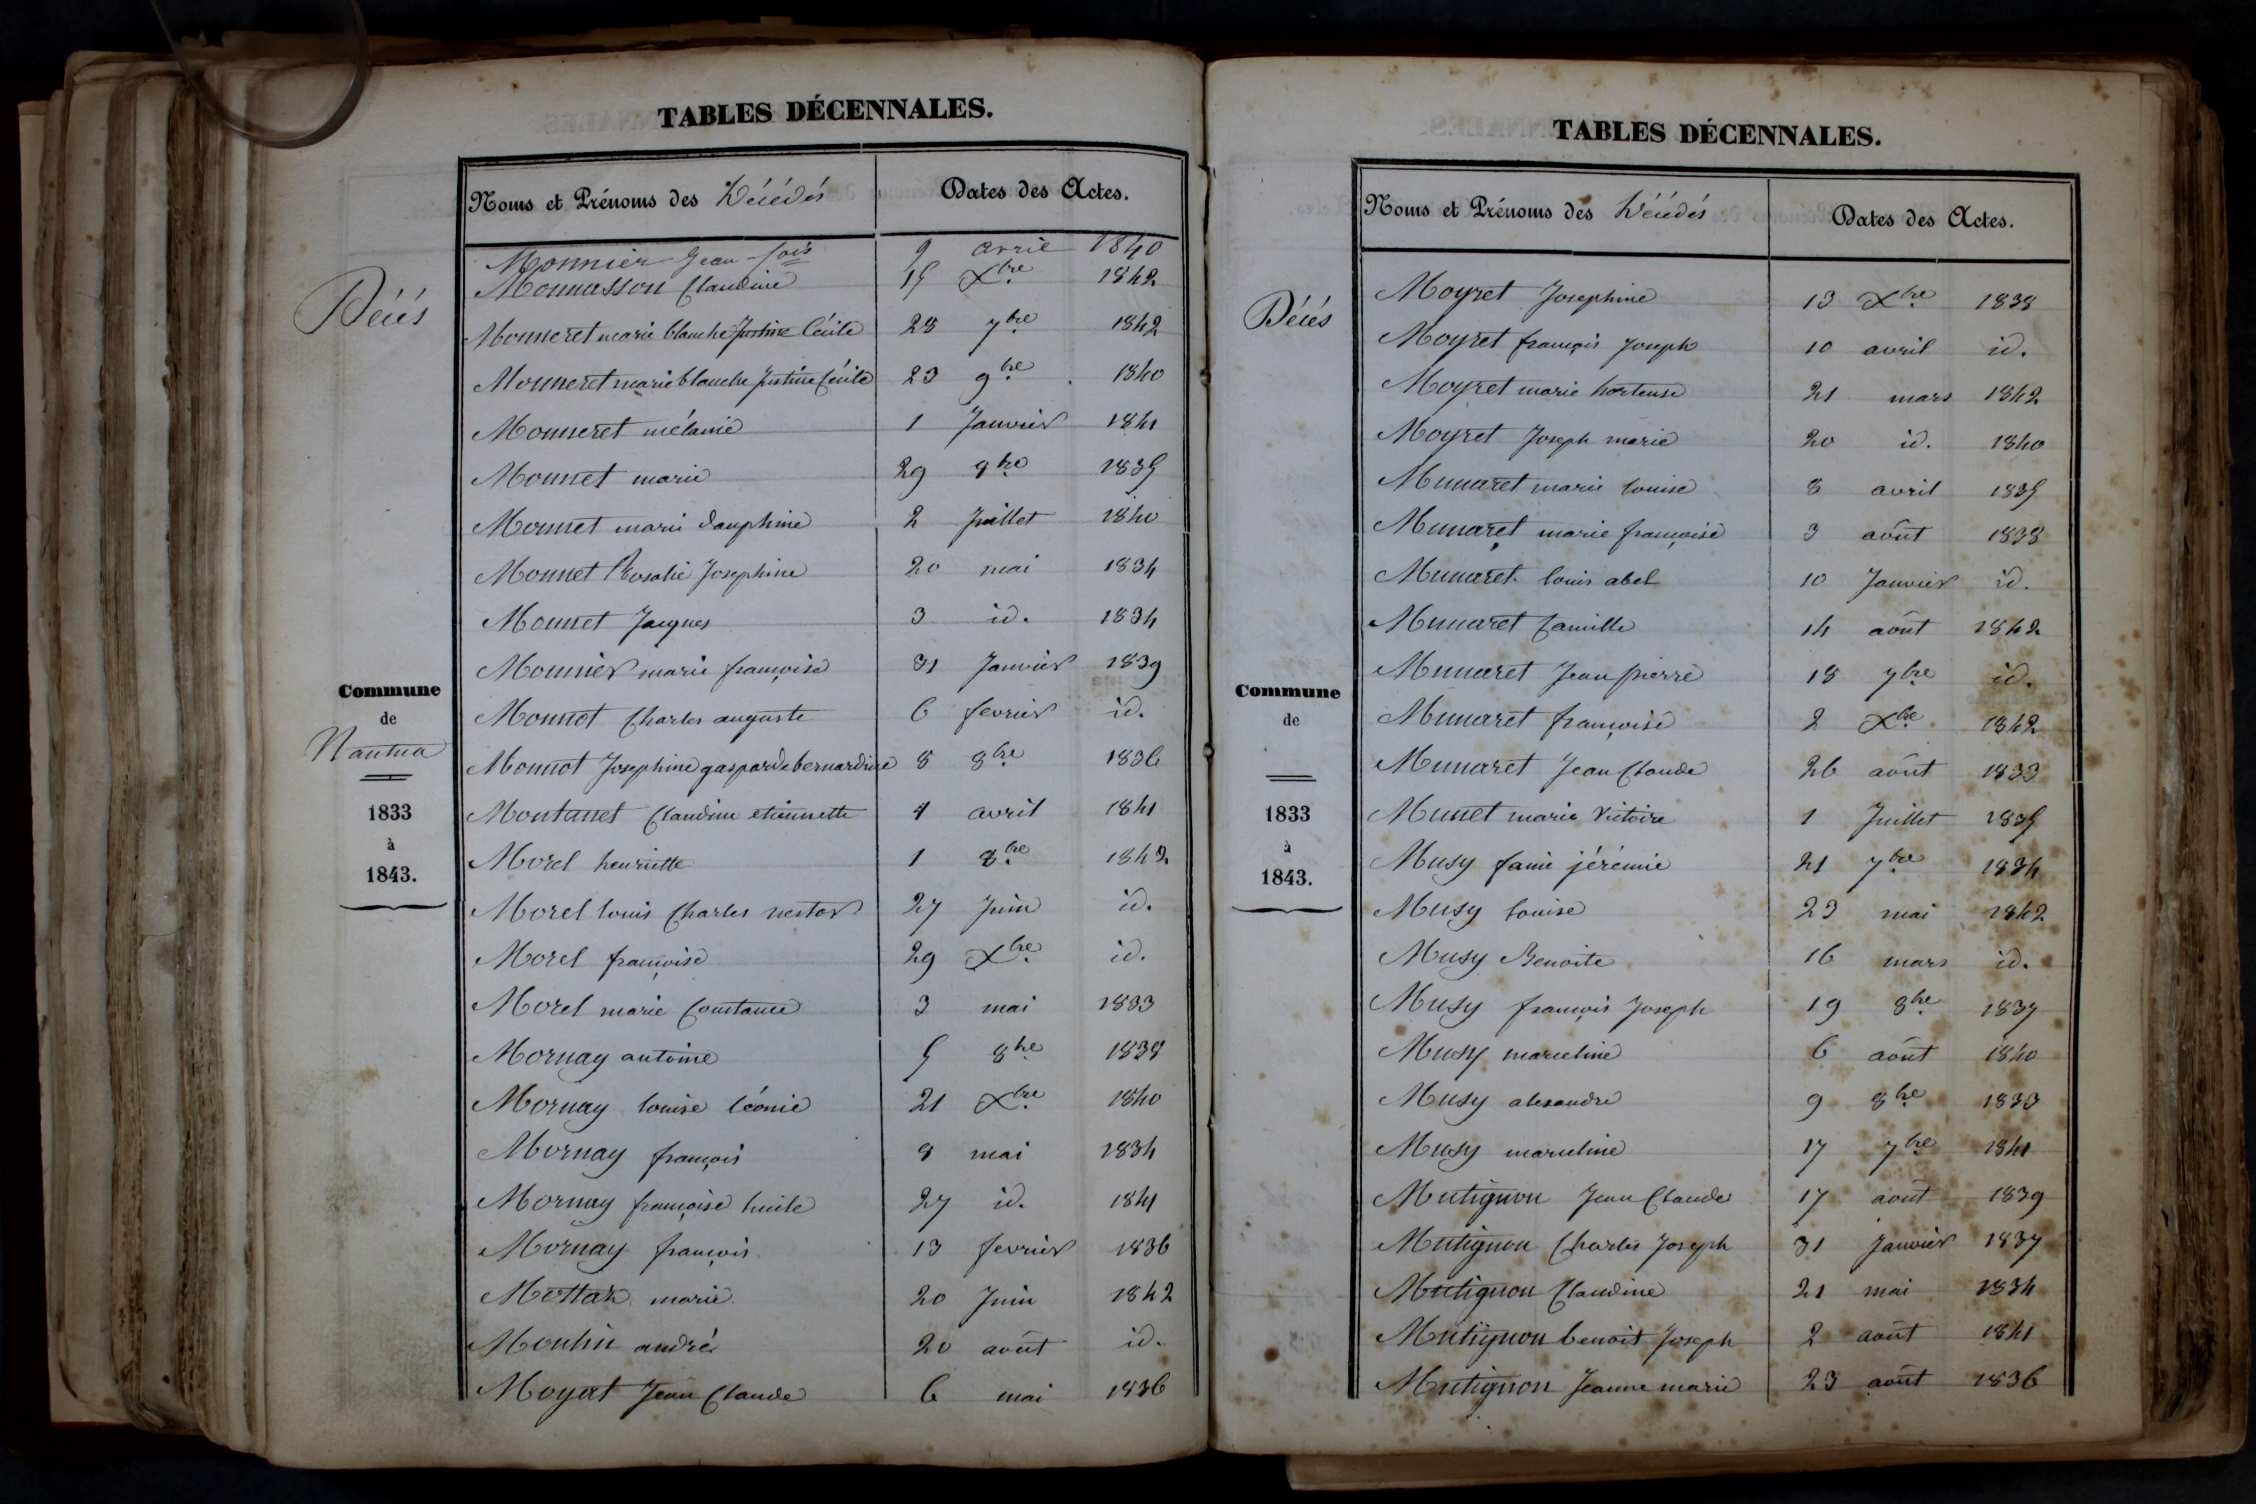 TABLES DÉCENNALES.
Noms et Prénoms des Décédés Dates des Actes.
Décés
Commune
de
Nantua
1833
à
1843.
Monnier Jean-fois 9 avril 1840
Monnasson Claudine 15 Xbre 1842
Monneret marie blanche Justine Cécile 28 7bre 1842
Monneret marie blanche Justine Cécile 23 9bre 1840
Monneret mélanie 1 Janvier 1841
Monnet marie 29 9bre 1835
Monnet marie dauphine 2 Juillet 1840
Monnet Rosalie Josephine 20 mai 1834
Monnet Jacques 3 id. 1834
Monnier marie françoise 31 Janvier 1839
Monnot Charles auguste 6 fevrier id.
Monnot Josephine gasparde bernardine 8 8bre 1836
Montanet Claudine etiennette 4 avril 1841
Morel henriette 1 8bre 1842
Morel louis Charles nestor 27 Juin id.
Morel françoise 29 Xbre id.
Morel marie Constance 3 mai 1833
Mornay antoine 5 8bre 1838
Mornay louise léonie 21 Xbre 1840
Mornay françois 8 mai 1834
Mornay françoise lucile 27 id. 1841
Mornay françois 13 fevrier 1836
Mottaz marie 20 Juin 1842
Moulin andré 20 août id.
Moyat Jean Claude 6 mai 1836
TABLES DÉCENNALES.
Noms et Prénoms des Décédés Dates des Actes.
Décés
Commune
de
1833
à
1843.
Moyret Josephine 13 Xbre 1838
Moyret françois Joseph 10 avril id.
Moyret marie hortense 21 mars 1842
Moyret Joseph marie 20 id. 1840
Munaret marie louise 8 avril 1835
Munaret marie françoise 3 août 1838
Munaret louis abel 10 Janvier id.
Munaret Camille 14 août 1842
Munaret Jean pierre 18 7bre id.
Munaret françoise 2 Xbre 1842
Munaret Jean Claude 26 août 1833
Munet marie Victoire 1 Juillet 1835
Musy fanie jérémie 21 7bre 1834
Musy louise 23 mai 1842
Musy Benoite 16 mars id.
Musy françois Joseph 19 8bre 1837
Musy marceline 6 août 1840
Musy alexandre 9 8bre 1833
Musy marceline 17 7bre 1841
Mutignon Jean Claude 17 août 1839
Mutignon Charles Joseph 31 Janvier 1837
Mutignon Claudine 21 mai 1834
Mutignon benoit Joseph 2 août 1841
Mutignon Jeanne marie 23 août 1836